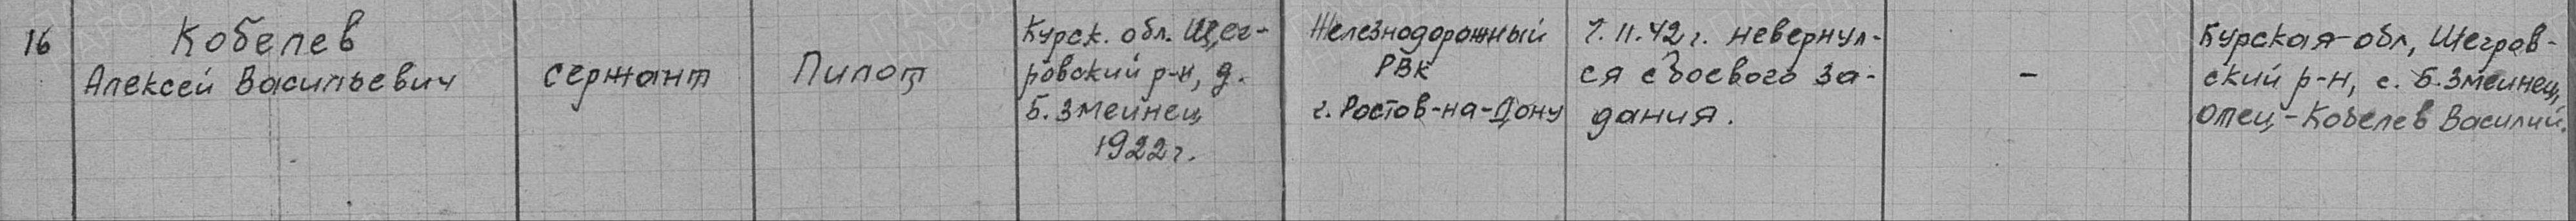 16
Кобелев
Алексей Васильевич
сержант
Пилот
Курск. обл. Щег-
ровский р-н, д.
Б. Змеинец
1922 г.
Железнодорожный
РВК
г. Ростов-на-Дону
7.11.42 г. невернул-
ся с боевого за-
дания.
-
Курская обл, Щегров-
ский р-н, с. Б. Змеинец,
Отец - Кобелев Василий.